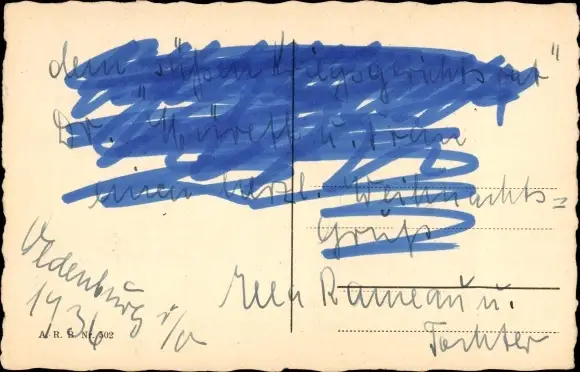 dem "süßen Kriegsgerichtsrat"
Dr. u. Frau
einen herzl. Weihnachts=
Gruß
Oldenburg i/O
1936
Rameau u.
Tochter
A. R. B. Nr. 502